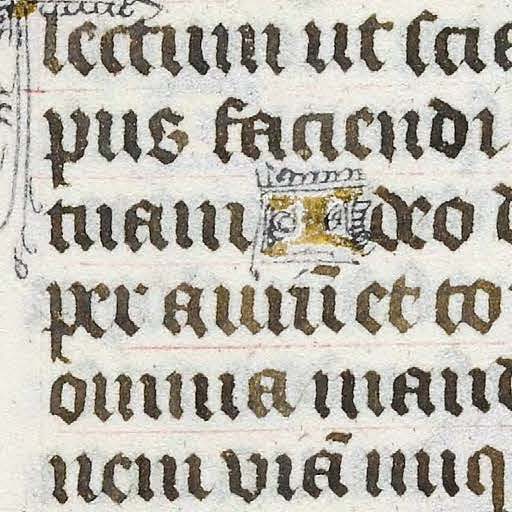 lectum ut scia
pus faciendi
tuam Ideo d
per aurū et to
omnia mand
nem viā iniq